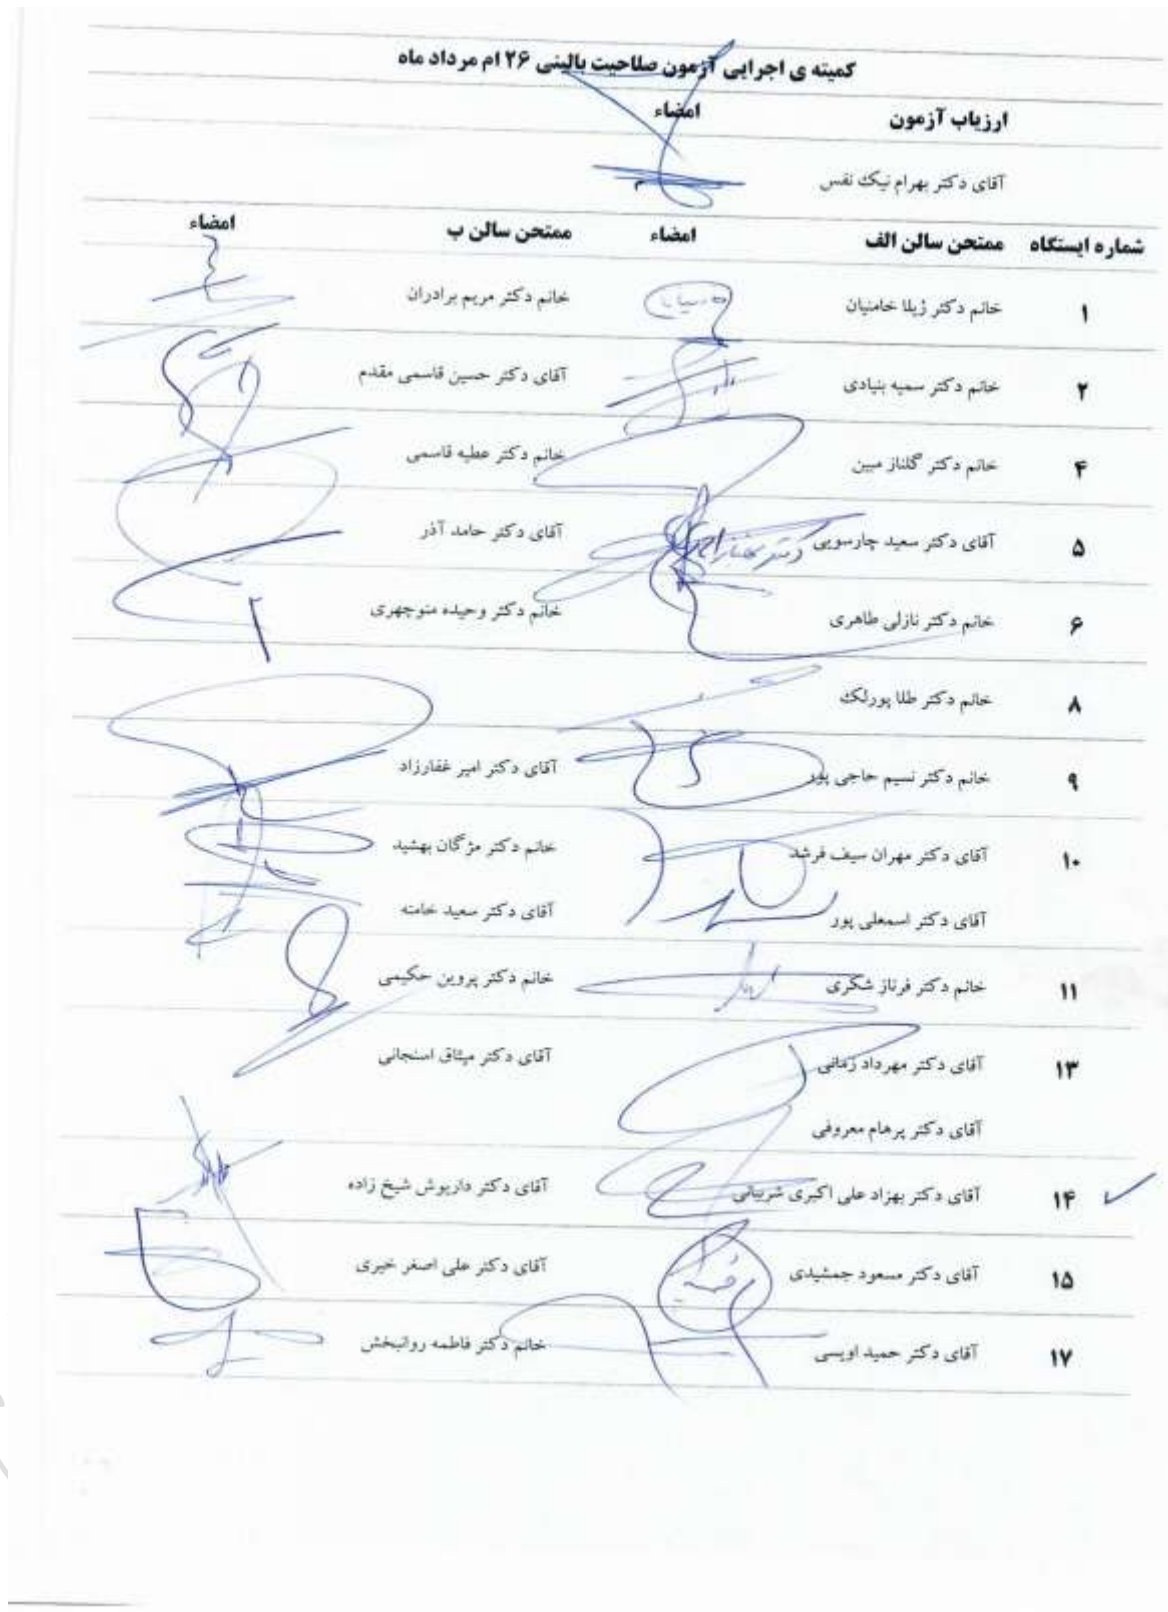 کمیته ی اجرایی آزمون صلاحیت بالینی ۲۶ ام مرداد ماه
ارزیاب آزمون امضاء
آقای دکتر بهرام نیک نفس
شماره ایستگاه ممتحن سالن الف امضاء ممتحن سالن ب امضاء
۱ خانم دکتر ژیلا خامنیان خانم دکتر مریم برادران
۲ خانم دکتر سمیه بنیادی آقای دکتر حسین قاسمی مقدم
۴ خانم دکتر گلناز مبین خانم دکتر عطیه قاسمی
۵ آقای دکتر سعید چارسویی آقای دکتر حامد آذر
۶ خانم دکتر نازلی طاهری خانم دکتر وحیده منوچهری
۸ خانم دکتر طلا پورلک
۹ خانم دکتر نسیم حاجی پور آقای دکتر امیر غفارزاد
۱۰ آقای دکتر مهران سیف فرشد خانم دکتر مژگان بهشید
آقای دکتر اسمعلی پور آقای دکتر سعید خامنه
۱۱ خانم دکتر فرناز شکری خانم دکتر پروین حکیمی
۱۳ آقای دکتر مهرداد زمانی آقای دکتر میثاق اسنجانی
آقای دکتر پرهام معروفی
۱۴ آقای دکتر بهزاد علی اکبری شربیانی آقای دکتر داریوش شیخ زاده
۱۵ آقای دکتر مسعود جمشیدی آقای دکتر علی اصغر خیری
۱۷ آقای دکتر حمید اویسی خانم دکتر فاطمه روانبخش